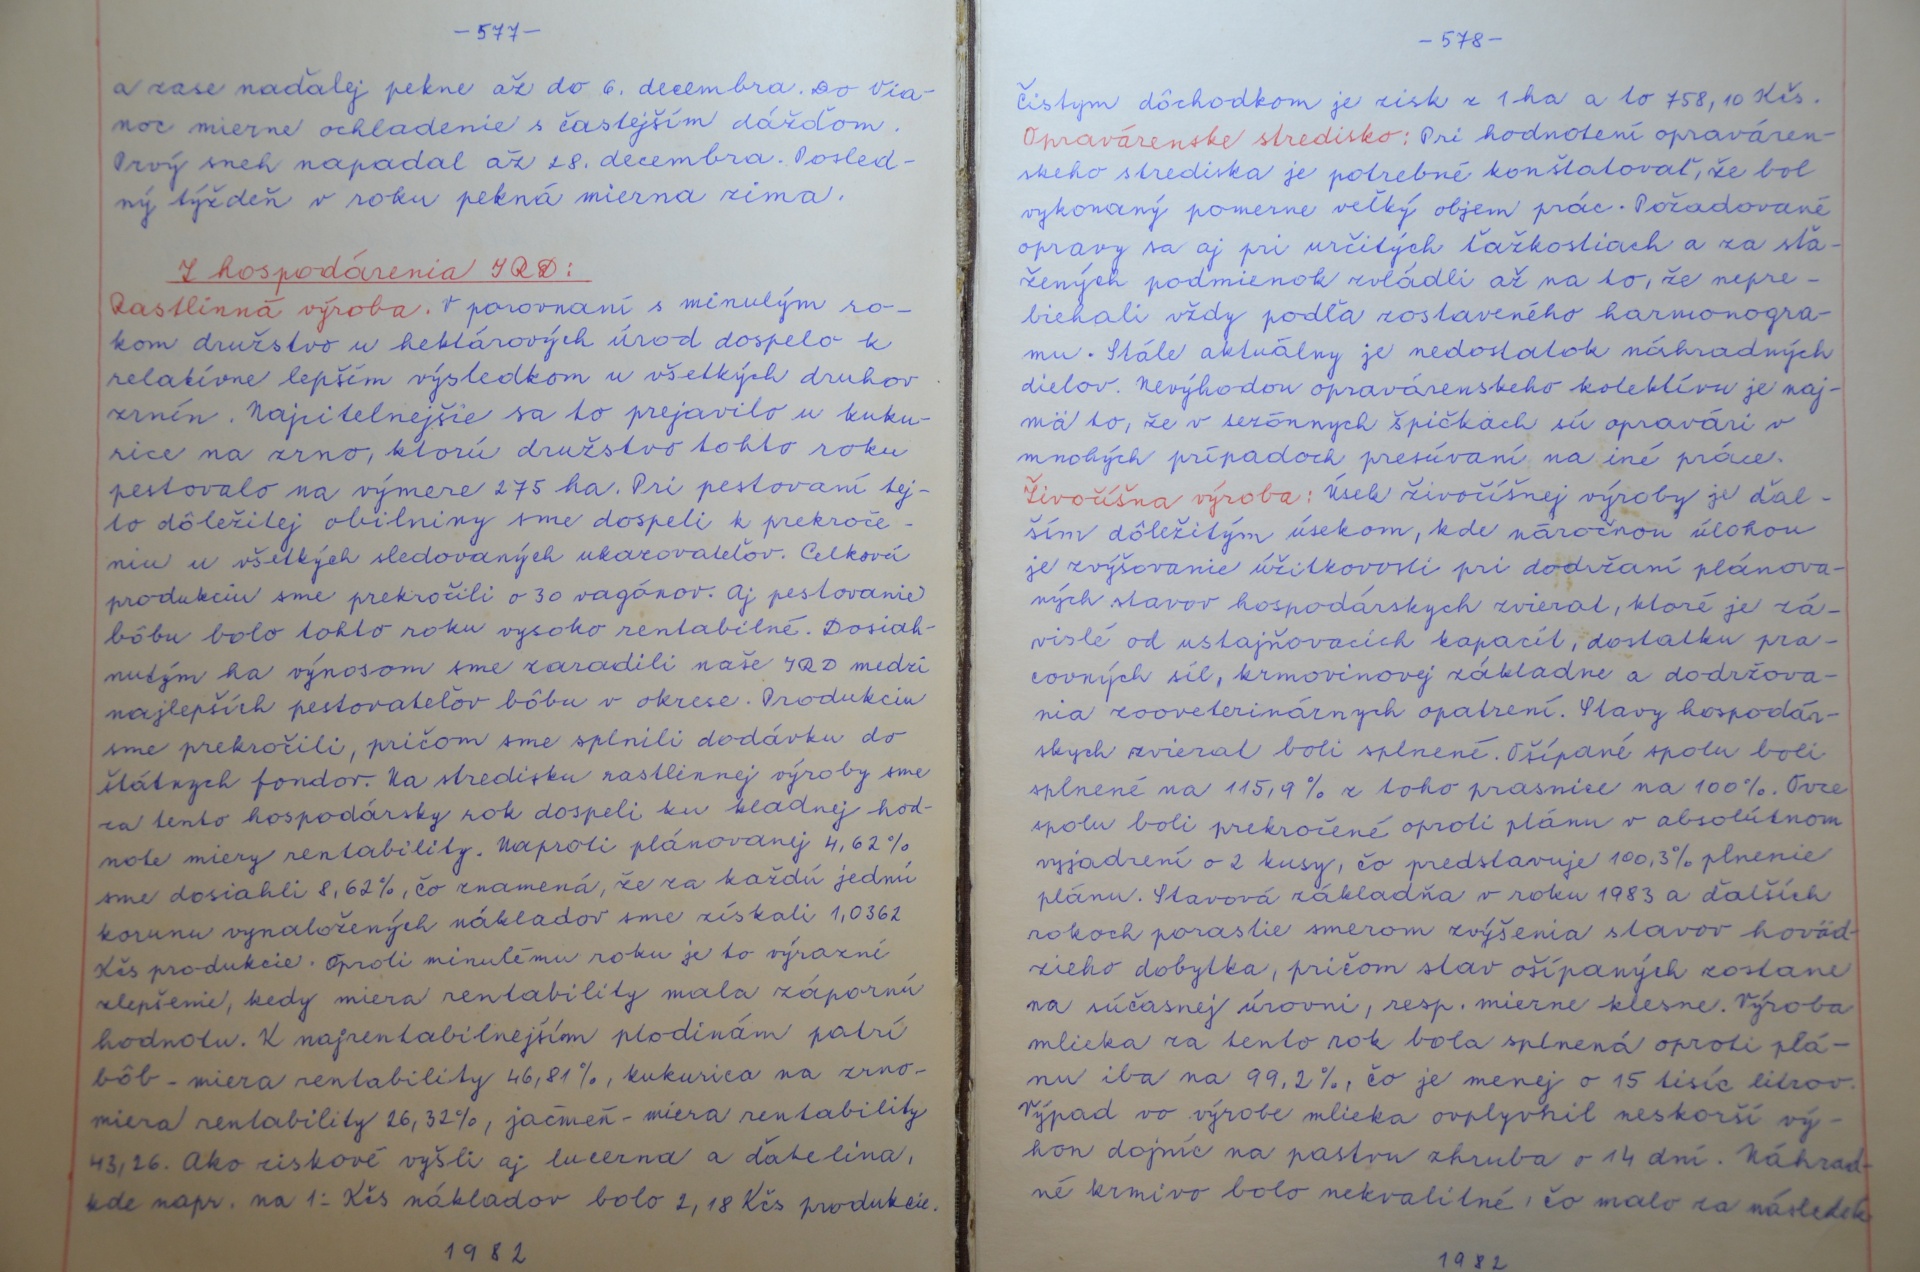 -577-
a zase naďalej pekne až do 6. decembra. Do Via-
noc mierne ochladenie s častejším dážďom.
Prvý sneh napadal až 28. decembra. Posled-
ný týždeň v roku pekná mierna zima.
Z hospodárenia JRD:
Rastlinná výroba. V porovnaní s minulým ro-
kom družstvo u hektárových úrod dospelo k
relatívne lepším výsledkom u všetkých druhov
zrnín. Najcitelnejšie sa to prejavilo u kuku-
rice na zrno, ktorú družstvo tohto roku
pestovalo na výmere 275 ha. Pri pestovaní tej-
to dôležitej obilniny sme dospeli k prekroče-
niu u všetkých sledovaných ukazovateľov. Celkovú
produkciu sme prekročili o 30 vagónov. Aj pestovanie
bôbu bolo tohto roku vysoko rentabilné. Dosiah-
nutým ha výnosom sme zaradili naše JRD medzi
najlepších pestovateľov bôbu v okrese. Produkciu
sme prekročili, pričom sme splnili dodávku do
štátnych fondov. Na stredisku rastlinnej výroby sme
za tento hospodársky rok dospeli ku kladnej hod-
note miery rentability. Naproti plánovanej 4,62%
sme dosiahli 8,62%, čo znamená, že za každú jednú
korunu vynaložených nákladov sme získali 1,0362
Kčs produkcie. Oproti minulému roku je to výrazné
zlepšenie, kedy miera rentability mala zápornú
hodnotu. K najrentabilnejším plodinám patrí
bôb - miera rentability 46,81%, kukurica na zrno-
miera rentability 26,32%, jačmeň - miera rentability
43,26. Ako ziskové vyšli aj lucerna a ďatelina,
kde napr. na 1.- Kčs nákladov bolo 2,18 Kčs produkcie.
1982
-578-
čistym dôchodkom je zisk z 1 ha a to 758,10 Kčs.
Opravárenske stredisko: Pri hodnotení opraváren-
skeho strediska je potrebné konštatovať, že bol
vykonaný pomerne veľký objem prác. Požadované
opravy sa aj pri určitých ťažkostiach a za sťa-
žených podmienok zvládli až na to, že nepre-
biehali vždy podľa zostaveného harmonogra-
mu. Stále aktuálny je nedostatok náhradných
dielov. Nevýhodou opravárenskeho kolektívu je naj-
mä to, že v sezónnych špičkách sú opravári v
mnohých prípadoch presúvaní na iné práce.
Živočíšna výroba: Úsek živočíšnej výroby je ďal-
ším dôležitým úsekom, kde náročnou úlohou
je zvýšovanie úžitkovosti pri dodržaní plánova-
ných stavov hospodárskych zvierat, ktoré je zá-
vislé od ustajňovacích kapacít, dostatku pra-
covných síl, krmovinovej základne a dodržova-
nia zooveterinárnych opatrení. Stavy hospodár-
skych zvierat boli splnené. Ošípané spolu boli
splnené na 115,9% z toho prasnice na 100%. Ovce
spolu boli prekročené oproti plánu v absolútnom
vyjadrení o 2 kusy, čo predstavuje 100,3% plnenie
plánu. Stavová základňa v roku 1983 a ďalších
rokoch porastie smerom zvýšenia stavov hoväd-
zieho dobytka, pričom stav ošípaných zostane
na súčasnej úrovni, resp. mierne klesne. Výroba
mlieka za tento rok bola splnená oproti plá-
nu iba na 99,2%, čo je menej o 15 tisíc litrov.
Výpad vo výrobe mlieka ovplyvnil neskorší vý-
hon dojníc na pastvu zhruba o 14 dní. Náhrad-
né krmivo bolo nekvalitné, čo malo za následek
1982